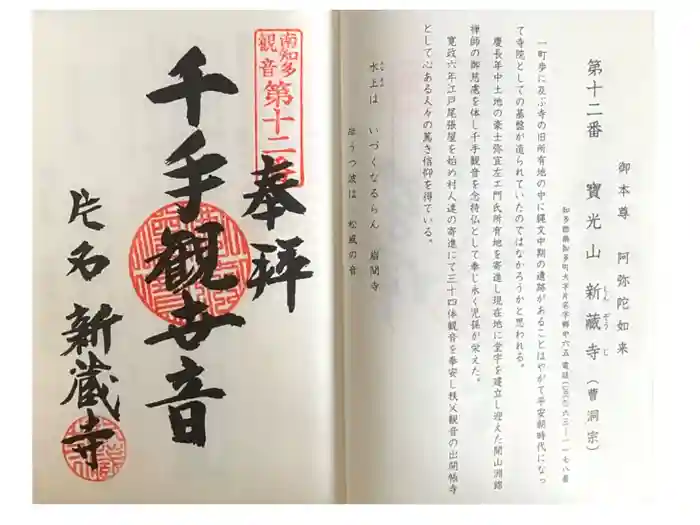 第十二番 寶光山 新蔵寺(曹洞宗)
しんぞうじ
御本尊 阿弥陀如来
知多郡南知多町大字片名字郷中六五 電話
一町歩に及ぶ寺の旧所有地の中に縄文中期の遺跡があることはやがて平安朝時代になっ
て寺院としての基盤が造られていたのではなかろうかと思われる。
慶長年中土地の豪士弥宜左エ門氏所有地を寄進し現在地に堂宇を建立し迎えた開山洲
禅師の御慈慮を体し千手観音を念持仏として奉し永く児孫が栄えた。
寛政六年江戸尾張屋を始め村人達の寄進にて三十四体観音を奉安し秩父観音の出開帳寺
として心ある人々の篤き信仰を得ている。
水上は いづくなるらん 岩間寺
みなかみ
岸うつ波は 松風の音
南知多
観音
第十二番
奉拝
千手観世音
片名 新蔵寺